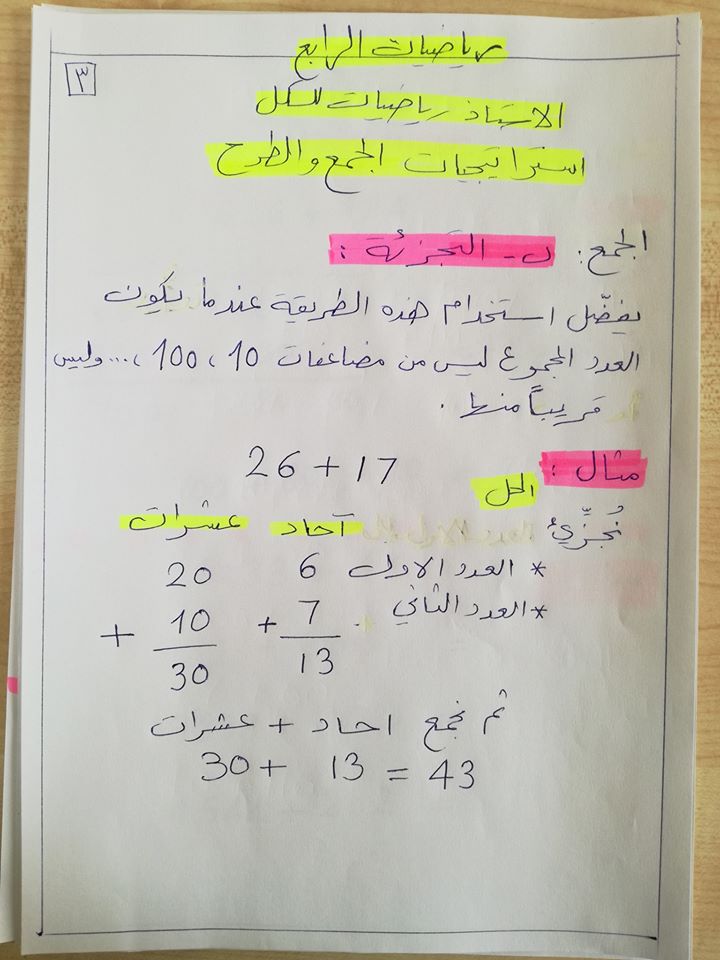 رياضيات الرابع
٣
الاستاذ رياضيات للكل
استراتيجيات الجمع والطرح
الجمع: ن - التجزئة :
يفضّل استخدام هذه الطريقة عندما يكون
العدد المجموع ليس من مضاعفات 10 ، 100 ، ... وليس
قريباً منها .
مثال : 26 + 17
الحل
نُجزِّئ آحاد عشرات
* العدد الاول 6 20
* العدد الثاني + 7 + 10
13 30
ثم نجمع احاد + عشرات
30 + 13 = 43